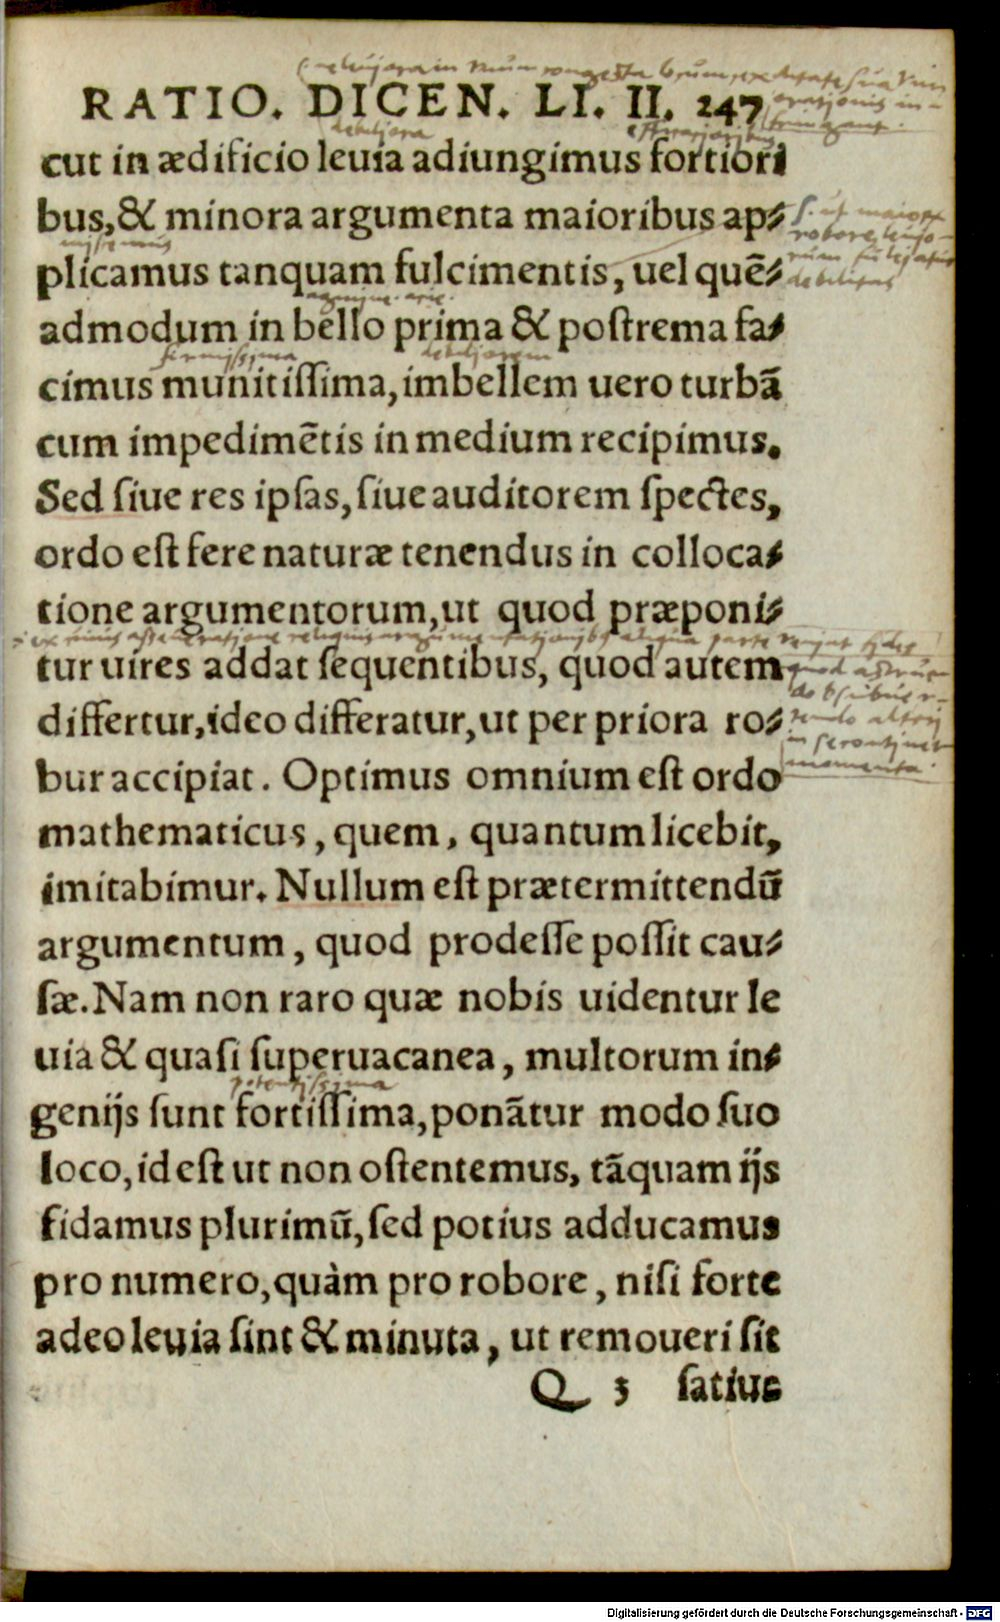 RATIO. DICEN. LI. II. 247
debiliora
cut in ædificio leuia adiungimus fortiori
bus, & minora argumenta maioribus ap⸗
plicamus tanquam fulcimentis, uel quẽ⸗
admodum in bello prima & poſtrema fa⸗
firmissima debiliorem
cimus munitiſſima, imbellem uero turbã
cum impedimẽtis in medium recipimus.
Sed ſiue res ipſas, ſiue auditorem ſpectes,
ordo eſt fere naturæ tenendus in colloca⸗
tione argumentorum, ut quod præponi⸗
tur uires addat ſequentibus, quod autem
differtur, ideo differatur, ut per priora ro⸗
bur accipiat. Optimus omnium eſt ordo
momenta.
mathematicus, quem, quantum licebit,
imitabimur. Nullum eſt prætermittendũ
argumentum, quod prodeſſe poſſit cau⸗
ſæ. Nam non raro quæ nobis uidentur le
uia & quaſi ſuperuacanea, multorum in⸗
potentissima
genijs ſunt fortiſſima, ponãtur modo ſuo
loco, id eſt ut non oſtentemus, tãquam ijs
fidamus plurimũ, ſed potius adducamus
pro numero, quàm pro robore, niſi forte
adeo leuia ſint & minuta, ut remoueri ſit
Q 3 ſatius
Digitalisierung gefördert durch die Deutsche Forschungsgemeinschaft - DFG